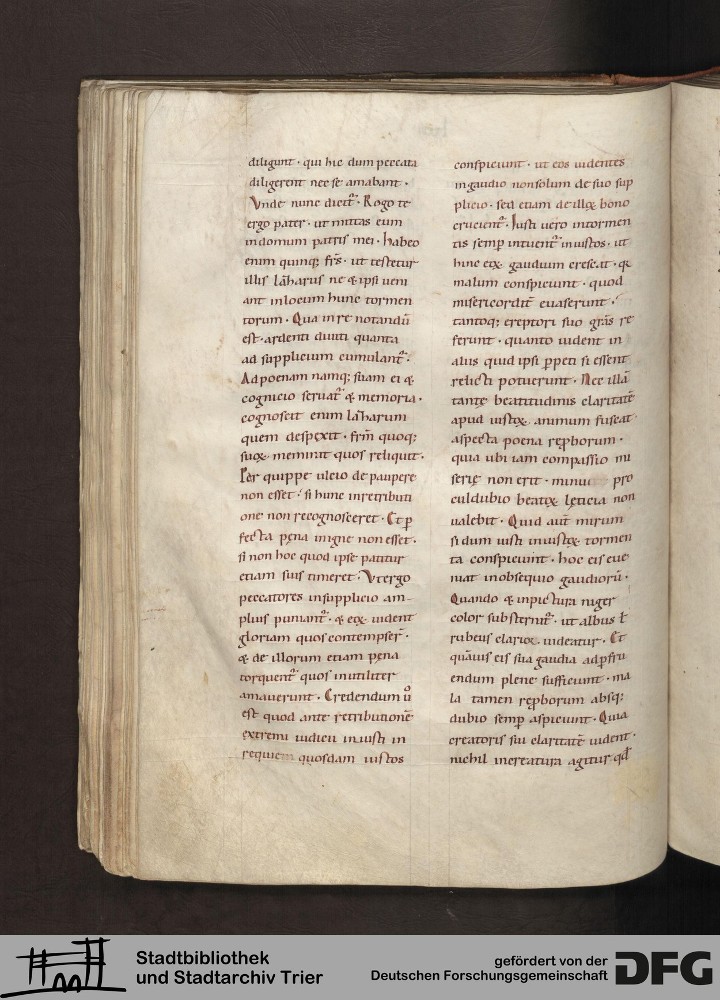 diligunt · qui hic dum peccata
diligerent nec se amabant ·
Vnde nunc dicit᷑ · Rogo te
ergo pater · ut mittas eum
in domum patris mei · habeo
enim quinq; fr̄s · ut testetur
illis lazarus ne & ipsi ueni
ant in locum hunc tormen
torum · Qua in re notandū
est · ardenti diuiti quanta
ad supplicium cumulant᷑ ·
Ad poenam namq; suam ei &
cognicio seruat᷑ & memoria ·
cognoscit enim lazarum
quem despexit · frm̄ quoq;
suoꝝ meminit quos reliquit ·
Per quippe ulcio de paupere
non esset · si hunc in retributi
one non recognosceret · Et ꝑ
fecta pęna in igne non esset ·
si non hoc quod ipse patitur
etiam suis timeret · Vt ergo
peccatores in supplicio am-
plius puniant᷑ · & eoꝝ uident
gloriam quos contempser̄ ·
& de illorum etiam pęna
torquent᷑ quos inutiliter
amauerunt · Credendum ů
est quod ante retributionē
extremi iudicii iniusti in
requiem quosdam iustos
conspiciunt · ut eos uidentes
in gaudio non solum de suo sup
plicio · sed etiam de illoꝝ bono
crucient᷑ · Iusti uero in tormen
tis semp̄ intuent᷑ iniustos · ut
hinc eoꝝ gaudium crescat · qa
malum conspiciunt · quod
misericordit᷑ euaserunt ·
tantoq; ereptori suo gr̄as re
ferunt · quanto uident in
aliis quid ipsi ꝑpeti si essent
relicti potuerunt · Nec illā
tantę beatitudinis claritatē
apud iustoꝝ animum fuscat
aspecta poena reꝑborum ·
quia ubi iam compassio mi
serię non erit · minu pro
culdubio beatoꝝ lęticia non
ualebit · Quid aut̄ mirum
si dum iusti iniustoꝝ tormen
ta conspiciunt · hoc eis eue
niat in obsequio gaudiorū ·
Quando & in pictura niger
color substernit᷑ · ut albus ł
rubeus clarior uideatur · Et
quāuis eis sua gaudia ad ꝑfru
endum plene sufficiunt · ma
la tamen reꝑborum absq;
dubio semp̄ aspiciunt · Quia
creatoris sui claritatē uident ·
nichil in creatura agitur qd̄
Stadtbibliothek
und Stadtarchiv Trier
gefördert von der
Deutschen Forschungsgemeinschaft
DFG